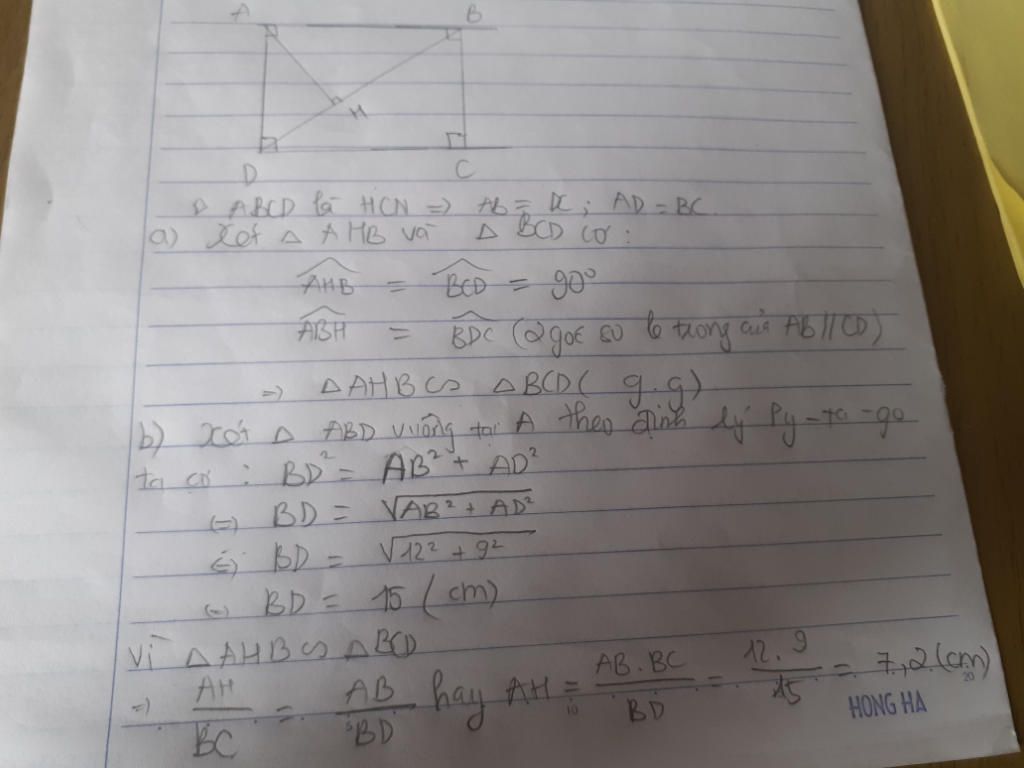 A B
H
D C
ABCD là HCN => AB = DC ; AD = BC.
a) Xét △ AHB và △ BCD có :
AHB = BCD = 90°
ABH = BDC (2 góc so le trong của AB // CD)
=> △AHB ∽ △BCD ( g.g)
b) Xét △ ABD vuông tại A theo định lý Py-ta-go
ta có : BD² = AB² + AD²
(=) BD = √AB² + AD²
(=) BD = √12² + 9²
(=) BD = 15 (cm)
Vì △AHB ∽ △BCD
=> AH/BC = AB/BD hay AH = AB.BC/BD = 12.9/15 = 7,2 (cm)
10 20
HONG HA